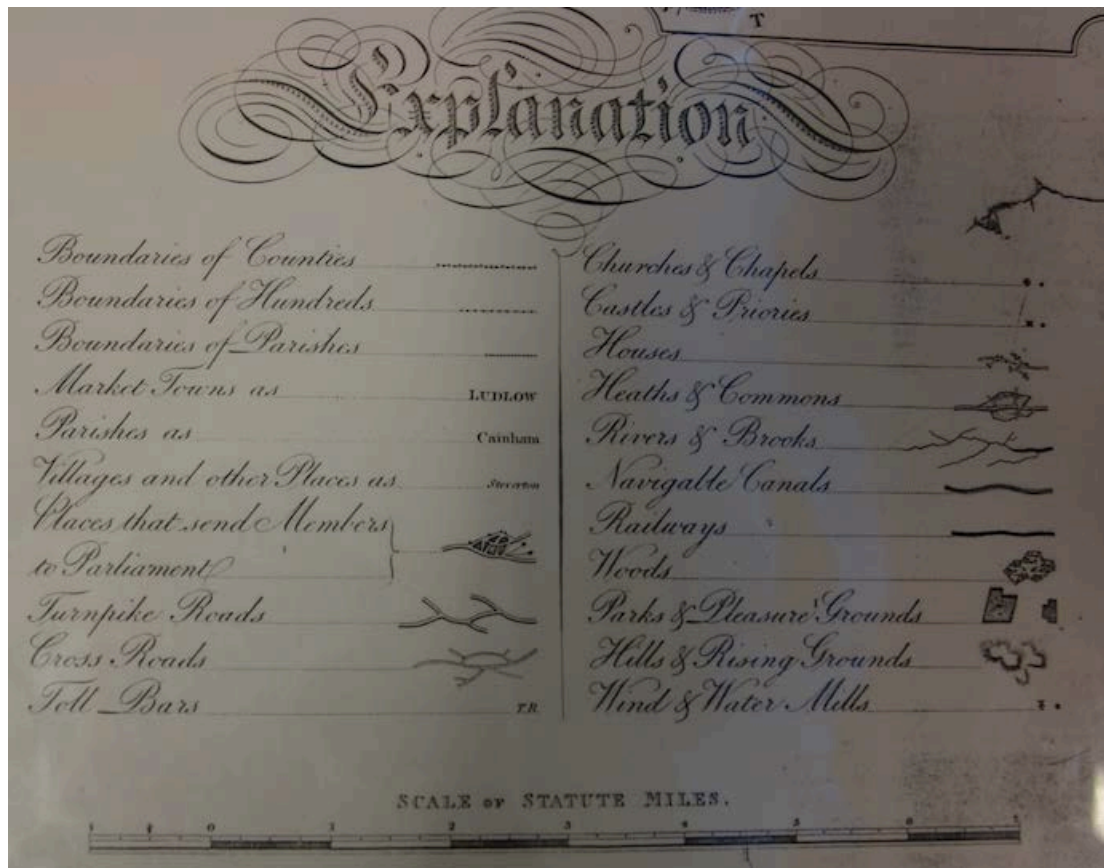 T
Explanation
Boundaries of Countres
Boundaries of Hundreds
Boundaries of Parishes
Market Towns as LUDLOW
Parishes as Cainham
Villages and other Places as
Places that send Members
to Parliament
Turnpike Roads
Cross Roads
Toll Bars
Churches & Chapels
Castles & Priories
Houses
Heaths & Commons
Rivers & Brooks
Navigable Canals
Railways
Woods
Parks & Pleasure Grounds
Hills & Rising Grounds
Wind & Water Mills
SCALE OF STATUTE MILES.